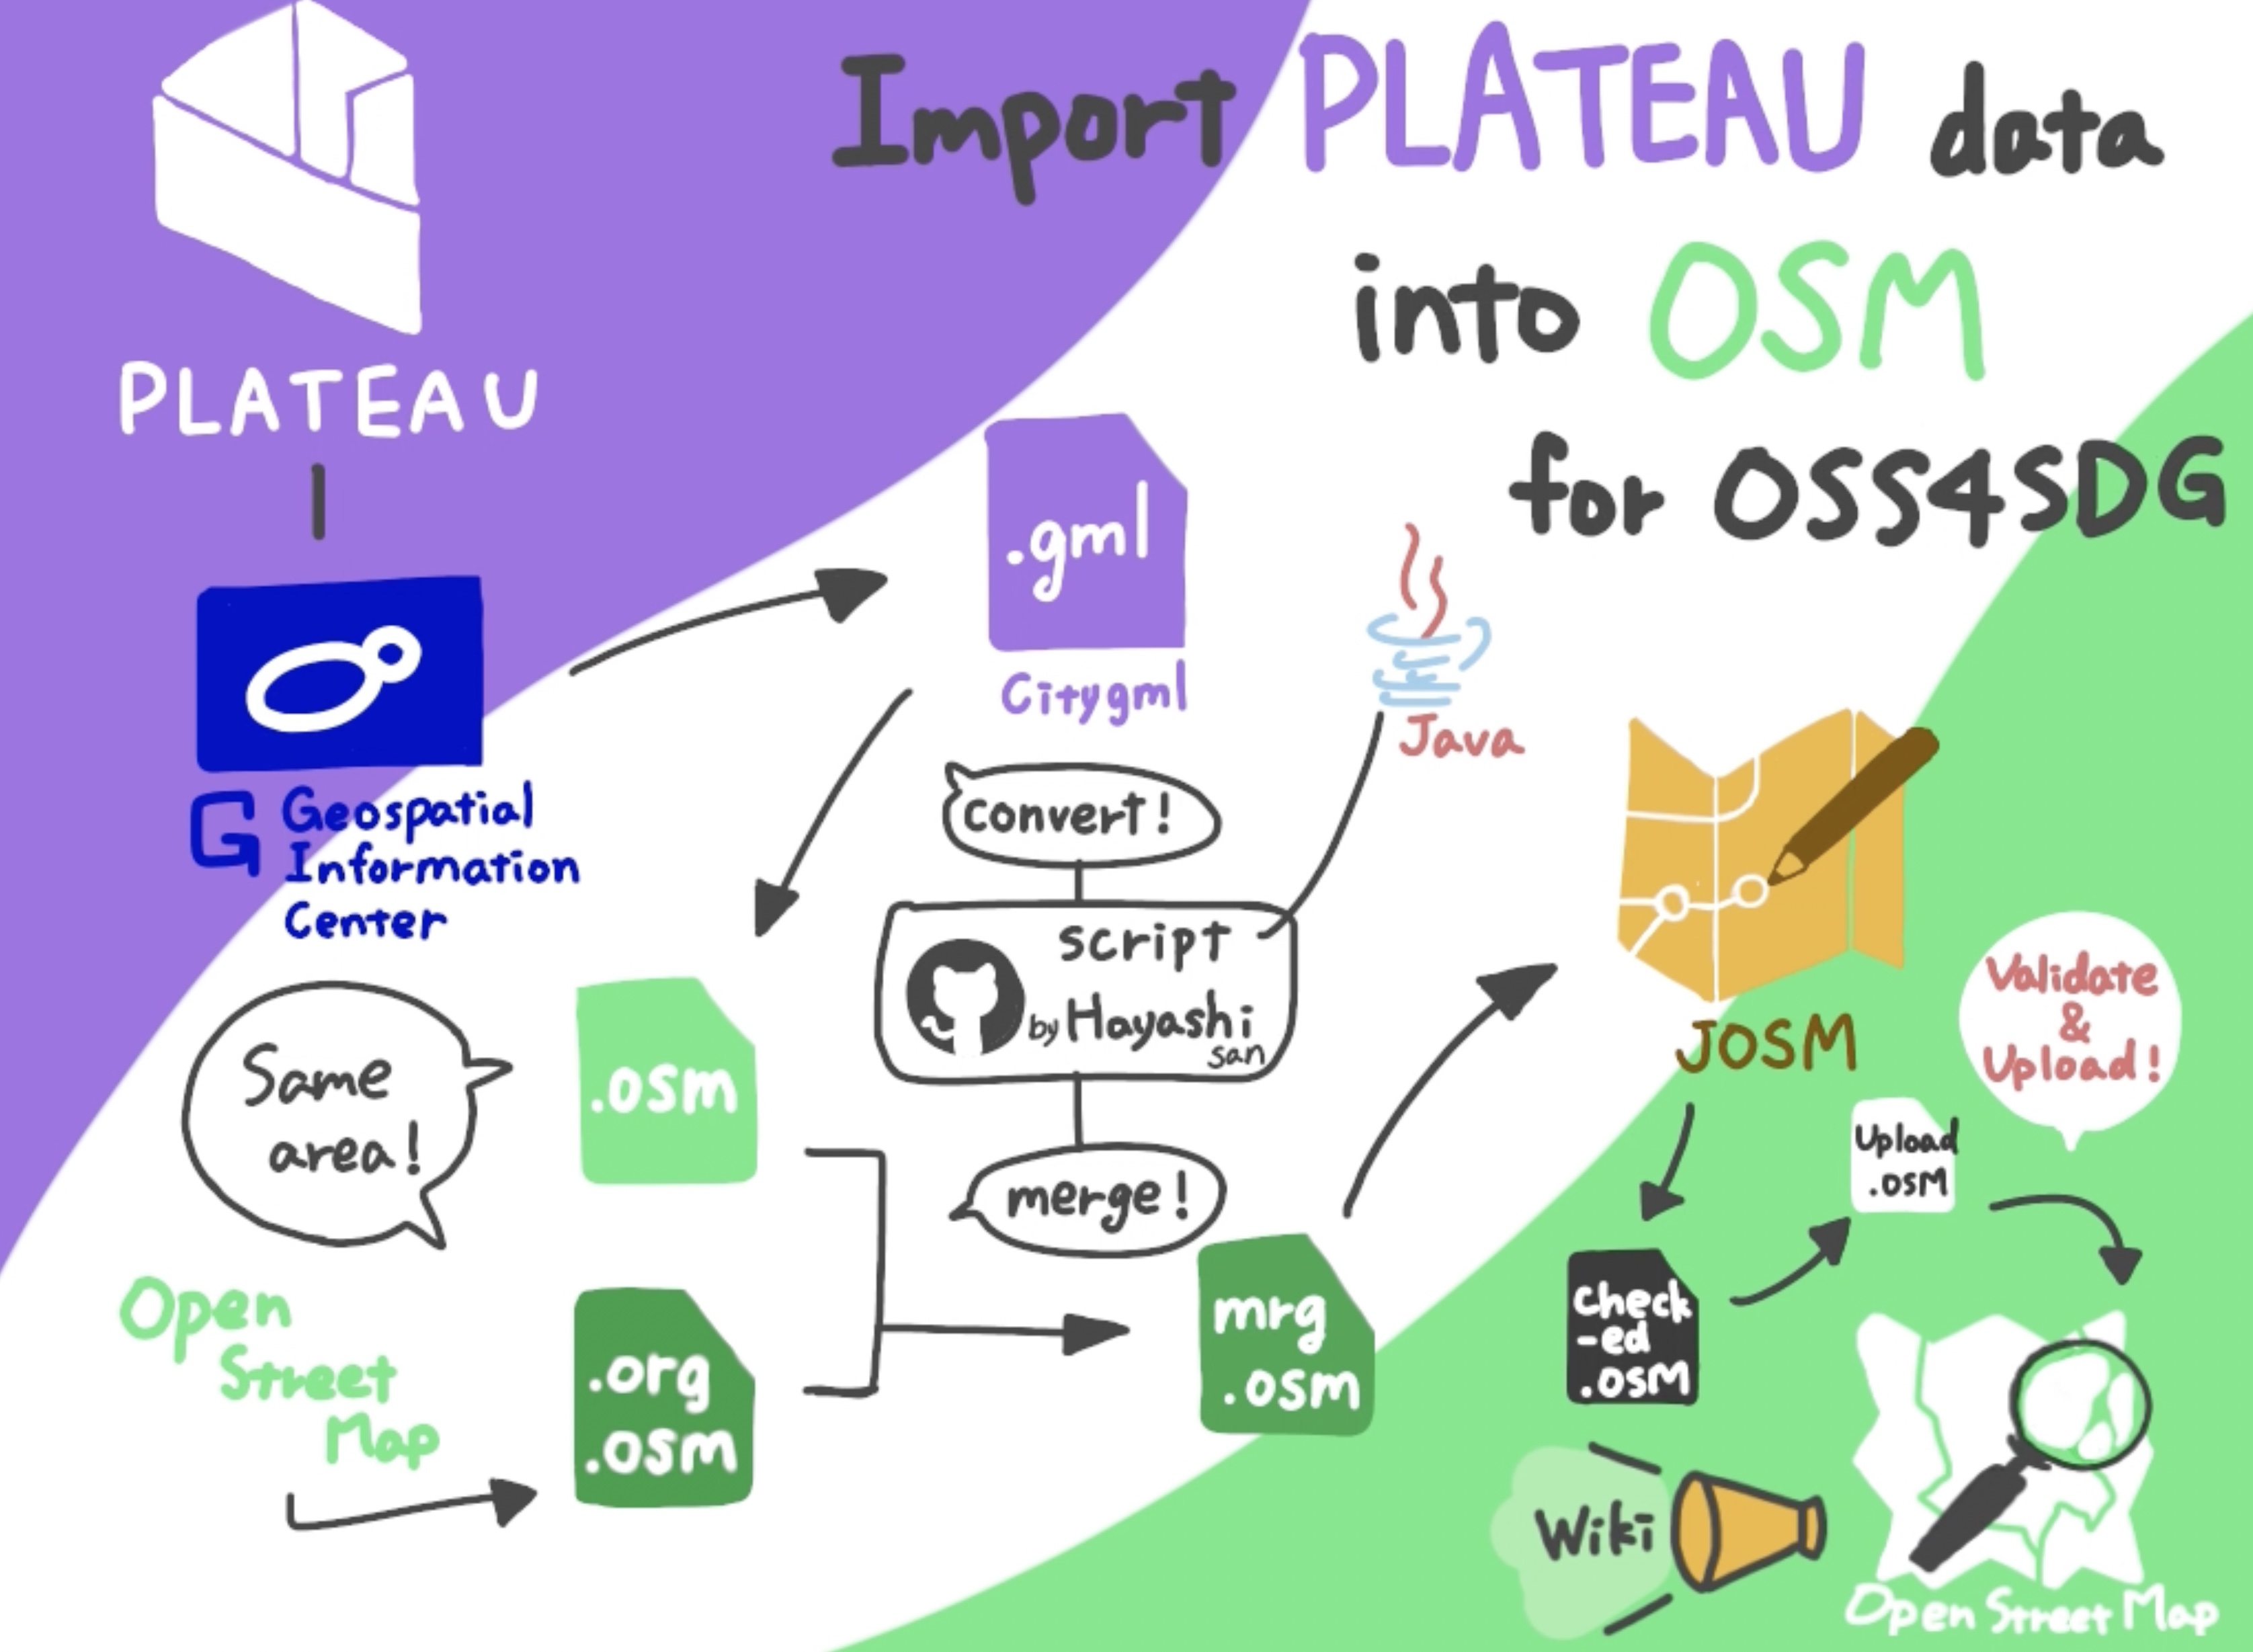 Import PLATEAU data
into OSM
for OSS4SDG
PLATEAU
G Geospatial
Information
Center
.gml
Citygml
Java
convert!
script
by Hayashi
san
merge!
Same
area!
.osm
Open
Street
Map
.org
.osm
mrg
.osm
JOSM
Validate
&
Upload!
Upload
.osm
check
-ed
.osm
Wiki
Open Street Map